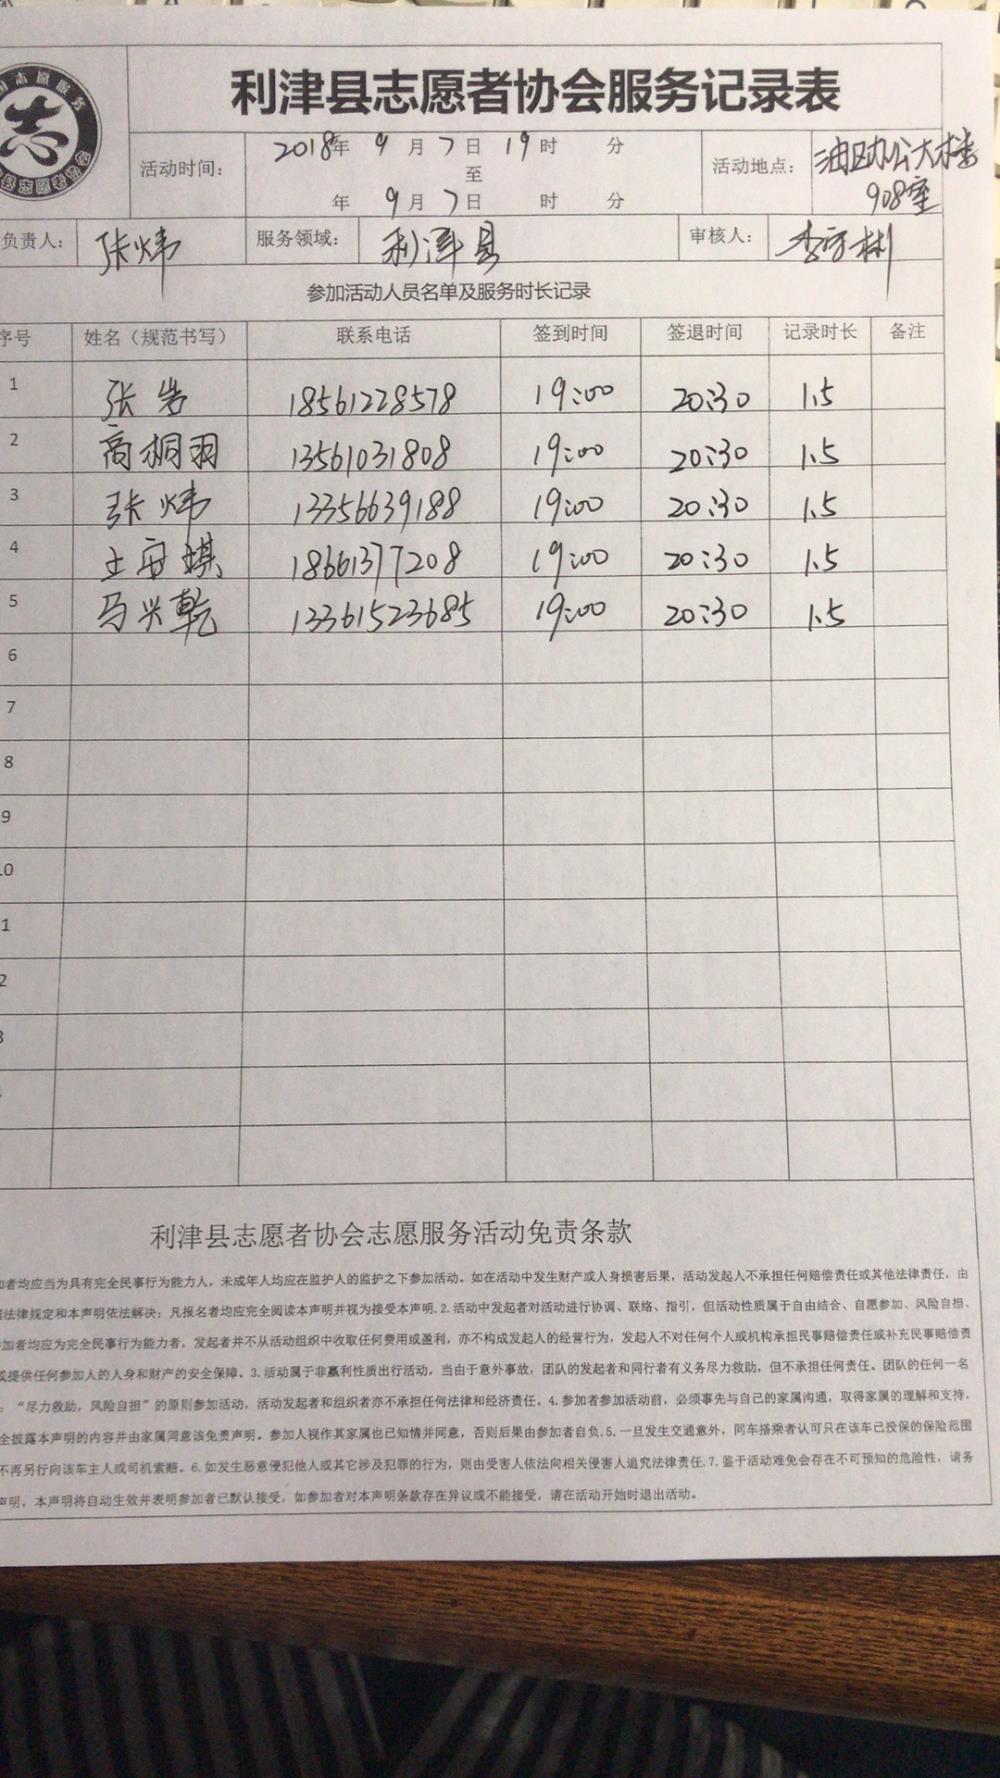 利津县志愿者协会服务记录表
活动时间： 2018年 9 月 7 日 19 时 分
至
年 9 月 7 日 时 分
活动地点： 油区办公大楼
908室
负责人： 张炜 服务领域： 利津县 审核人：
参加活动人员名单及服务时长记录
序号 姓名（规范书写） 联系电话 签到时间 签退时间 记录时长 备注
1 张岩 18561228578 19:00 20:30 1.5
2 高桐羽 13561031808 19:00 20:30 1.5
3 张炜 13356639188 19:00 20:30 1.5
4 18661377208 19:00 20:30 1.5
5 马兴乾 13361523685 19:00 20:30 1.5
6
7
8
9
10
1
2
3
利津县志愿者协会志愿服务活动免责条款
加者均应当为具有完全民事行为能力人，未成年人均应在监护人的监护之下参加活动。如在活动中发生财产或人身损害后果，活动发起人不承担任何赔偿责任或其他法律责任，由
法律规定和本声明依法解决；凡报名者均应完全阅读本声明并视为接受本声明.2.活动中发起者对活动进行协调、联络、指引，但活动性质属于自由结合、自愿参加、风险自担、
加者均应为完全民事行为能力者，发起者并不从活动组织中收取任何费用或盈利，亦不构成发起人的经营行为，发起人不对任何个人或机构承担民事赔偿责任或补充民事赔偿责
或提供任何参加人的人身和财产的安全保障。3.活动属于非赢利性质出行活动，当由于意外事故，团队的发起者和同行者有义务尽力救助，但不承担任何责任。团队的任何一名
：“尽力救助，风险自担”的原则参加活动，活动发起者和组织者亦不承担任何法律和经济责任。4.参加者参加活动前，必须事先与自己的家属沟通，取得家属的理解和支持，
全披露本声明的内容并由家属同意该免责声明。参加人视作其家属也已知情并同意，否则后果由参加者自负.5.一旦发生交通意外，同车搭乘者认可只在该车已投保的保险范围
不再另行向该车主人或司机索赔。6.如发生恶意侵犯他人或其它涉及犯罪的行为，则由受害人依法向相关侵害人追究法律责任.7.鉴于活动难免会存在不可预知的危险性，请务
声明，本声明将自动生效并表明参加者已默认接受，如参加者对本声明条款存在异议或不能接受，请在活动开始时退出活动。